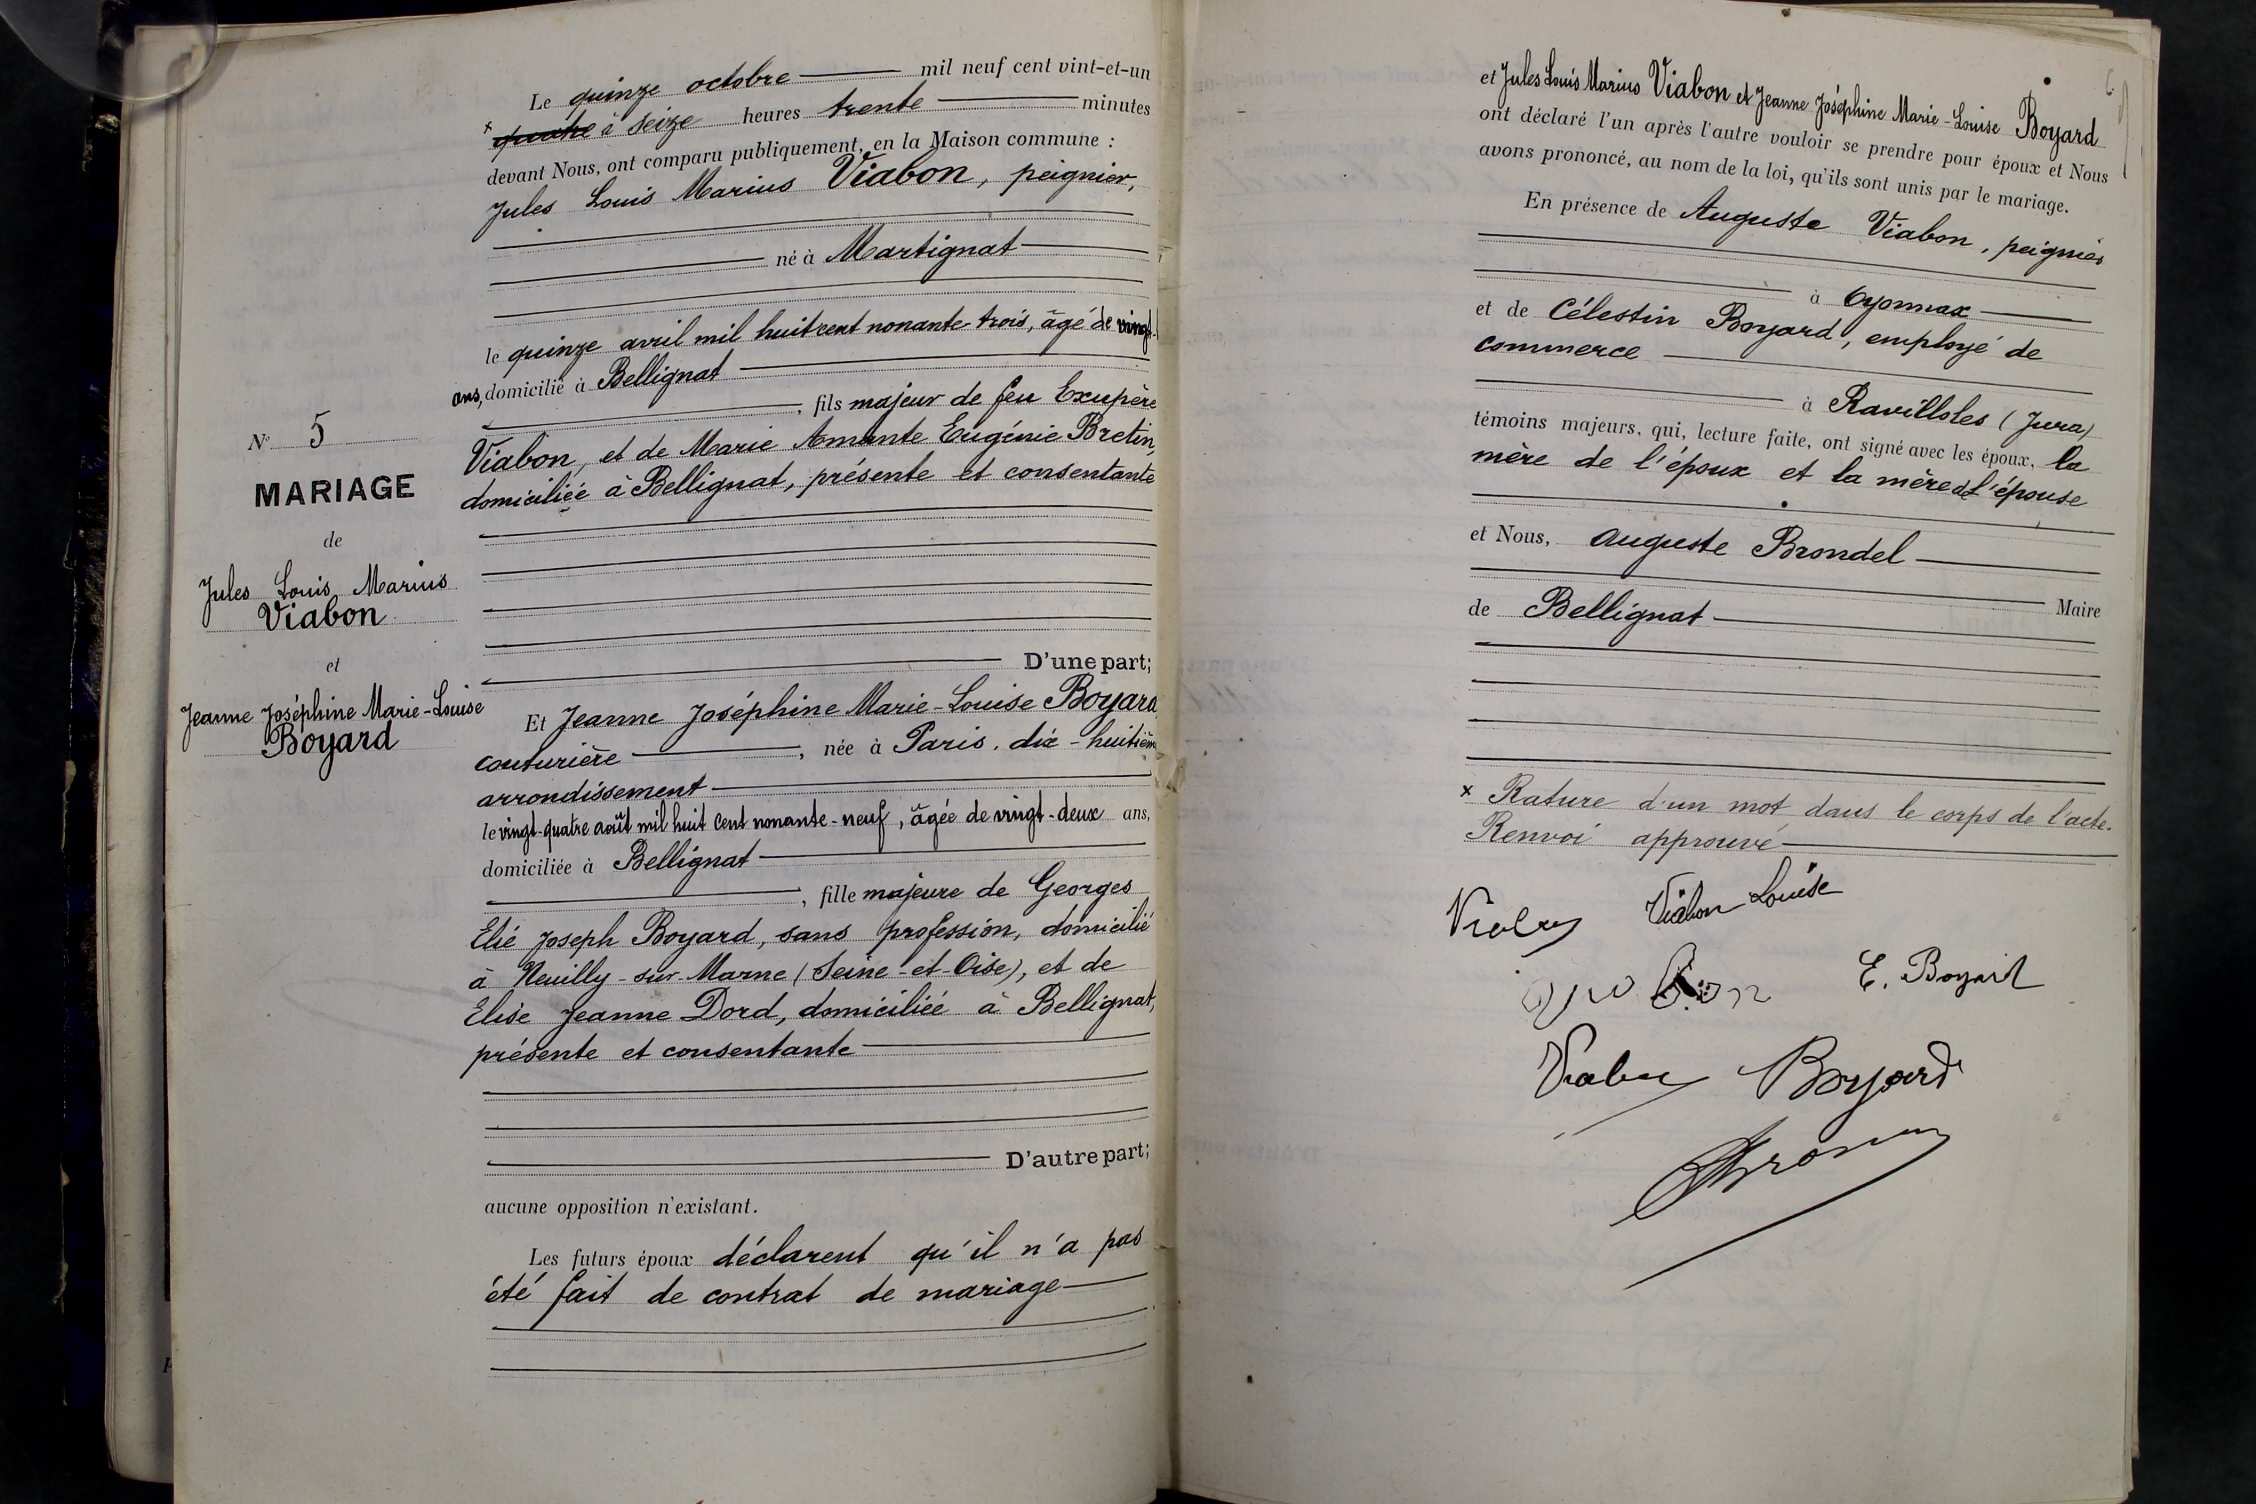 Le quinze octobre mil neuf cent vint-et-un
x quatre à seize heures trente minutes
devant Nous, ont comparu publiquement, en la Maison commune :
Jules Louis Marius Viabon, peignier,
né à Martignat
le quinze avril mil huit cent nonante-trois, âgé de vingt-
ans, domicilié à Bellignat
, fils majeur de feu Exupère
Viabon, et de Marie Amante Eugénie Bretin,
domiciliée à Bellignat, présente et consentante
N° 5
MARIAGE
de
Jules Louis Marius
Viabon
et
Jeanne Joséphine Marie-Louise
Boyard
D'une part;
Et Jeanne Joséphine Marie-Louise Boyard
couturière, née à Paris, dix-huitième
arrondissement
le vingt-quatre août mil huit cent nonante-neuf, âgée de vingt-deux ans,
domiciliée à Bellignat
, fille majeure de Georges
Elié Joseph Boyard, sans profession, domicilié
à Neuilly-sur-Marne (Seine-et-Oise), et de
Elise Jeanne Dord, domiciliée à Bellignat,
présente et consentante
D'autre part;
aucune opposition n'existant.
Les futurs époux déclarent qu'il n'a pas
été fait de contrat de mariage
et Jules Louis Marius Viabon et Jeanne Joséphine Marie-Louise Boyard
ont déclaré l'un après l'autre vouloir se prendre pour époux et Nous
avons prononcé, au nom de la loi, qu'ils sont unis par le mariage.
En présence de Auguste Viabon, peignier
à Oyonnax
et de Célestin Boyard, employé de
commerce
à Ravilloles (Jura)
témoins majeurs, qui, lecture faite, ont signé avec les époux, la
mère de l'époux et la mère de l'épouse
et Nous, Auguste Brondel
Maire
de Bellignat
x Rature d'un mot dans le corps de l'acte.
Renvoi approuvé
Viabon Viabon Louise
E. Boyard
Viabon Boyard